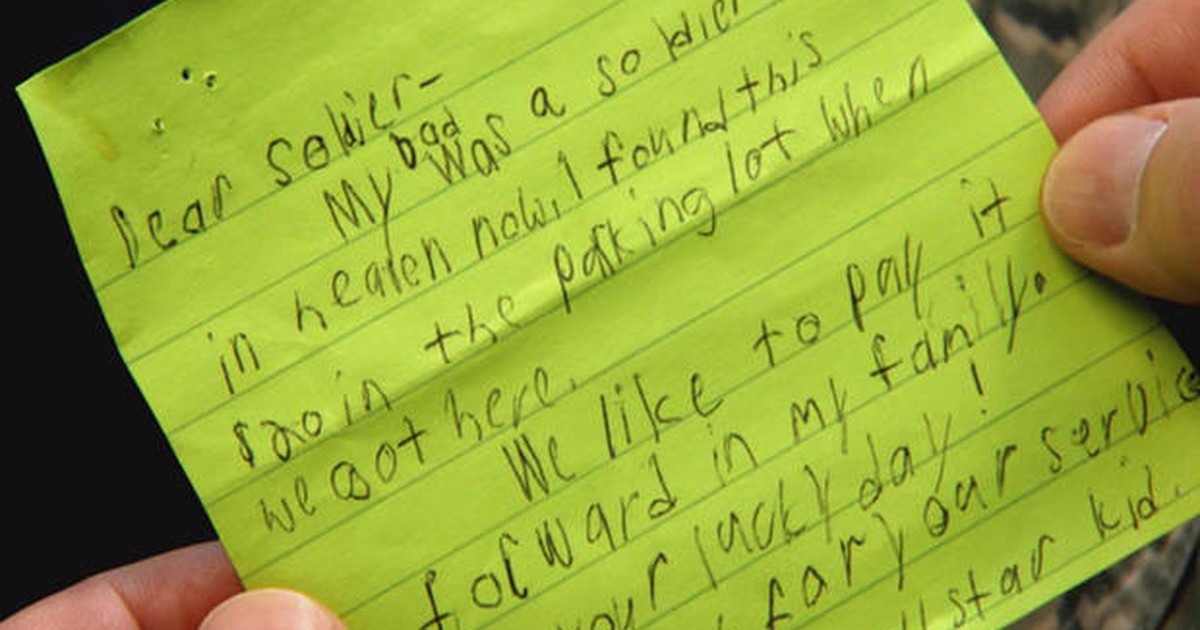 Dear Soldier-
My Dad was a soldier
in heaven now. I found this
$20 in the parking lot when
we got here.
We like to pay it
forward in my family.
your lucky day!
your service
star kid.